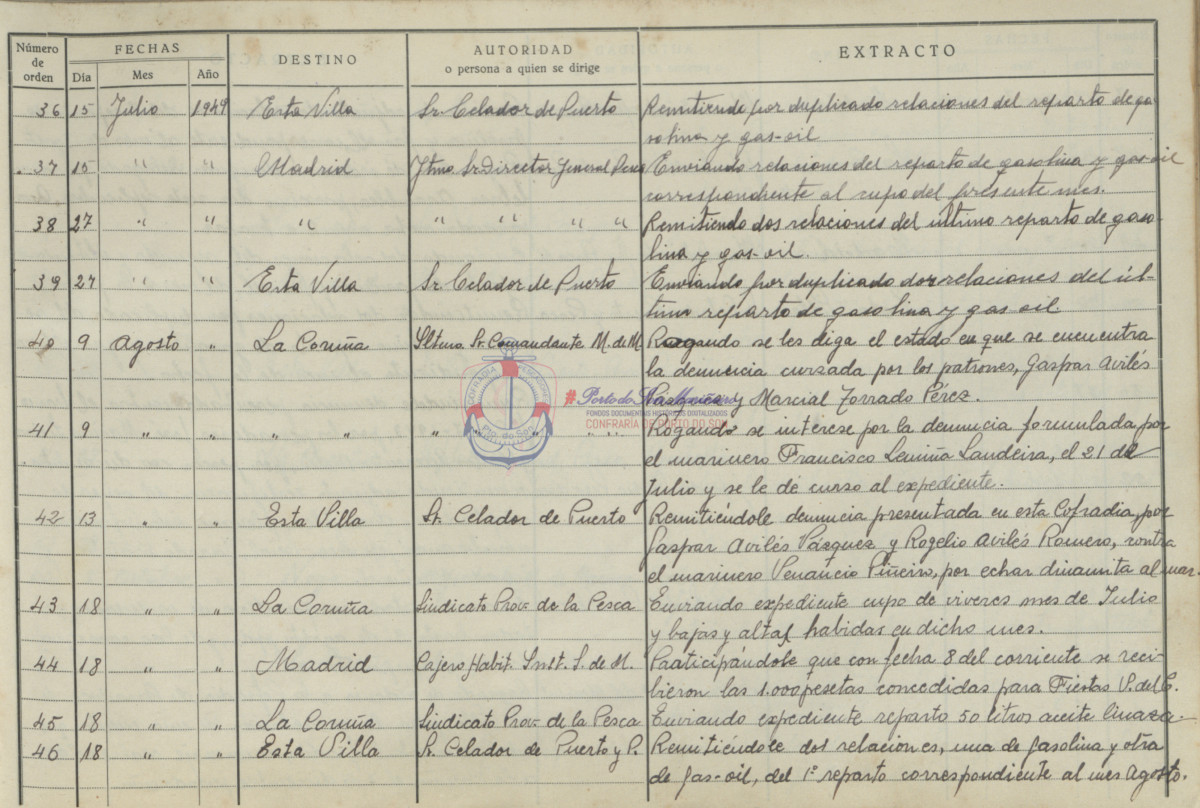 Número de orden FECHAS DESTINO AUTORIDAD EXTRACTO
Dia Mes Año o persona a quien se dirige
36 15 Julio 1949 Esta Villa Sr. Celador de Puerto Remitiendo por duplicado relaciones del reparto de ga
solina y gas-oil
37 15 " " Madrid Iltmo. Sr. Director General Pesca Enviando relaciones del reparto de gasolina y gas-oil
correspondiente al cupo del presente mes.
38 27 " " " " " " " Remitiendo dos relaciones del último reparto de gaso-
lina y gas-oil.
39 27 " " Esta Villa Sr. Celador de Puerto Enviando por duplicado dos relaciones del úl-
timo reparto de gasolina y gas oil.
40 9 Agosto " La Coruña Iltmo. Sr. Comandante M. de M. Rogando se les diga el estado en que se encuentra
la denuncia cursada por los patrones, Gaspar Avilés
y Marcial Torrado Pérez.
CONFRADIA PESCADORES
Pto. do Son
#Porto do Son
FONDOS DOCUMENTAIS HISTÓRICOS DIXITALIZADOS
CONFRARÍA DE PORTO DO SON
41 9 " " " " " " " Rogando se interese por la denuncia formulada por
el marinero Francisco Laudeira, el 21 de
Julio y se le dé curso al expediente.
42 13 " " Esta Villa Sr. Celador de Puerto Remitiéndole denuncia presentada en esta Cofradia, por
Gaspar Avilés Vázquez y Rogelio Avilés Romero, contra
el marinero Venancio Piñeiro, por echar dinamita al mar.
43 18 " " La Coruña Sindicato Prov. de la Pesca Enviando expediente cupo de viveres mes de Julio
y bajas y altas habidas en dicho mes.
44 18 " " Madrid Cajero Habit. Inst. S. de M. Participándole que con fecha 8 del corriente se reci-
bieron las 1.000 pesetas concedidas para Fiestas V. del C.
45 18 " " La Coruña Sindicato Prov. de la Pesca Enviando expediente reparto 50 litros aceite linaza
46 18 " " Esta Villa Sr. Celador de Puerto y P. Remitiéndole dos relaciones, una de gasolina y otra
de gas-oil, del 1º reparto correspondiente al mes Agosto.